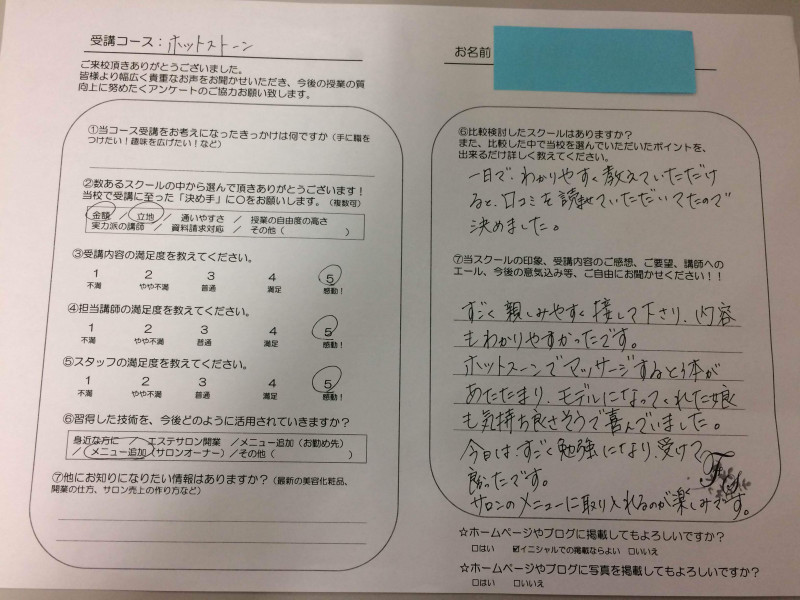 受講コース：ホットストーン
ご来校頂きありがとうございました。
皆様より幅広く貴重なお声をお聞かせいただき、今後の授業の質
向上に努めたくアンケートのご協力お願い致します。
①当コース受講をお考えになったきっかけは何ですか（手に職を
つけたい！趣味を広げたい！など）
②数あるスクールの中から選んで頂きありがとうございます！
当校で受講に至った「決め手」に○をお願いします。（複数可）
金額 ／ 立地 ／ 通いやすさ ／ 授業の自由度の高さ
実力派の講師 ／ 資料請求対応 ／ その他（ ）
③受講内容の満足度を教えてください。
1 2 3 4 5
不満 やや不満 普通 満足 感動！
④担当講師の満足度を教えてください。
1 2 3 4 5
不満 やや不満 普通 満足 感動！
⑤スタッフの満足度を教えてください。
1 2 3 4 5
不満 やや不満 普通 満足 感動！
⑥習得した技術を、今後どのように活用されていきますか？
身近な方に ／ エステサロン開業 ／メニュー追加（お勤め先）
／ メニュー追加（サロンオーナー）／その他（ ）
⑦他にお知りになりたい情報はありますか？（最新の美容化粧品、
開業の仕方、サロン売上の作り方など）
お名前
⑥比較検討したスクールはありますか？
また、比較した中で当校を選んでいただいたポイントを、
出来るだけ詳しく教えてください。
一日で、わかりやすく教えていただけ
ると、口コミを読ませていただいてたので
決めました。
⑦当スクールの印象、受講内容のご感想、ご要望、講師への
エール、今後の意気込み等、ご自由にお聞かせください！！
すごく親しみやすく接して下さり、内容
もわかりやすかったです。
ホットストーンでマッサージすると、体が
あたたまり、モデルになってくれた娘
も気持ち良さそうで喜んでいました。
今日は、すごく勉強になり、受けて
良かったです。
サロンのメニューに取り入れるのが楽しみです。
☆ホームページやブログに掲載してもよろしいですか？
□はい ☑イニシャルでの掲載ならよい □いいえ
☆ホームページやブログに写真を掲載してもよろしいですか？
□はい □いいえ